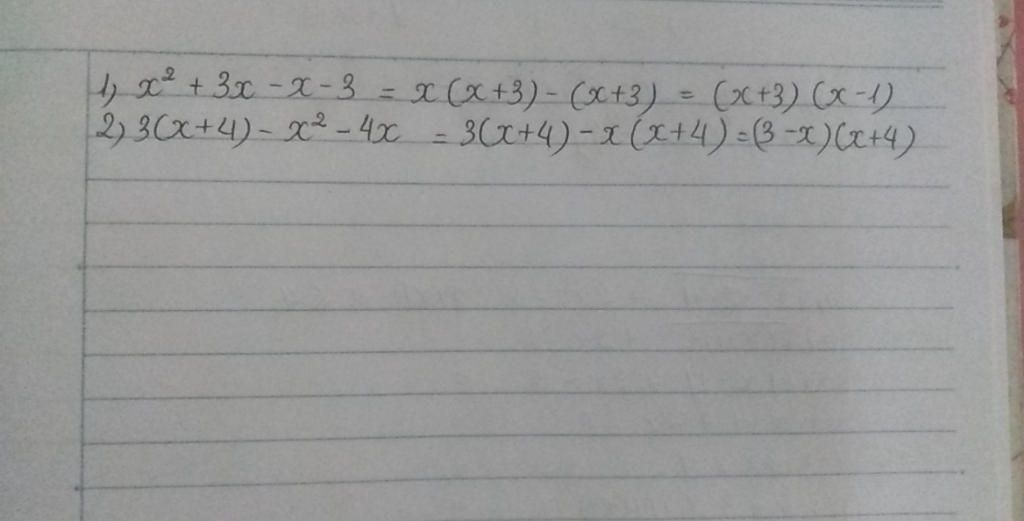 1) x² + 3x - x - 3 = x(x+3) - (x+3) = (x+3)(x-1)
2) 3(x+4) - x² - 4x = 3(x+4) - x(x+4) = (3-x)(x+4)